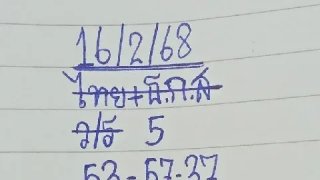 16/2/68
ไทย+ธ.ก.ส
ว/ร 5
53-57-37